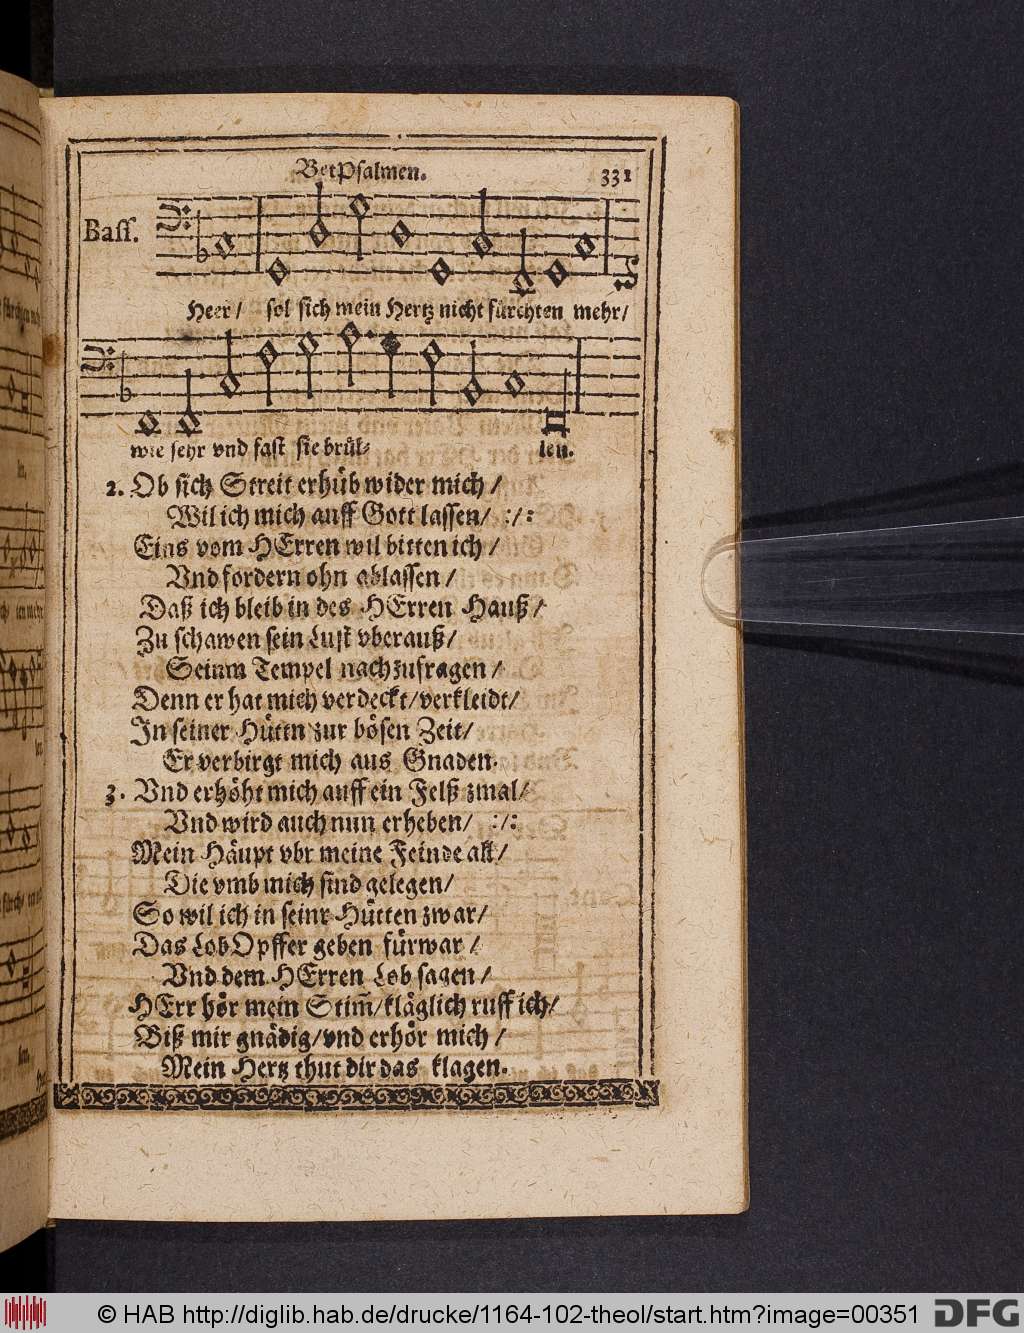 BetPsalmen. 331
Bass.
Heer/ sol sich mein Hertz nicht fürchten mehr/
wie sehr vnd fast sie brül-
len.
2. Ob sich Streit erhüb wider mich /
Wil ich mich auff Gott lassen/ :/:
Eins vom HErren wil bitten ich /
Vnd fordern ohn ablassen /
Daß ich bleib in des HErren Hauß /
Zu schawen sein Lust vberauß/
Seinm Tempel nachzufragen /
Denn er hat mich verdeckt/verkleidt/
In seiner Hüttn zur bösen Zeit/
Er verbirgt mich aus Gnaden.
3. Vnd erhöht mich auff ein Felß zmal/
Vnd wird auch nun erheben/ :/:
Mein Häupt vbr meine Feinde all/
Die vmb mich sind gelegen/
So wil ich in seinr Hütten zwar/
Das LobOpffer geben fürwar /
Vnd dem HErren Lob sagen /
HErr hör mein Stim̃/kläglich ruff ich/
Biß mir gnädig/vnd erhör mich /
Mein Hertz thut dir das klagen.
© HAB http://diglib.hab.de/drucke/1164-102-theol/start.htm?image=00351 DFG